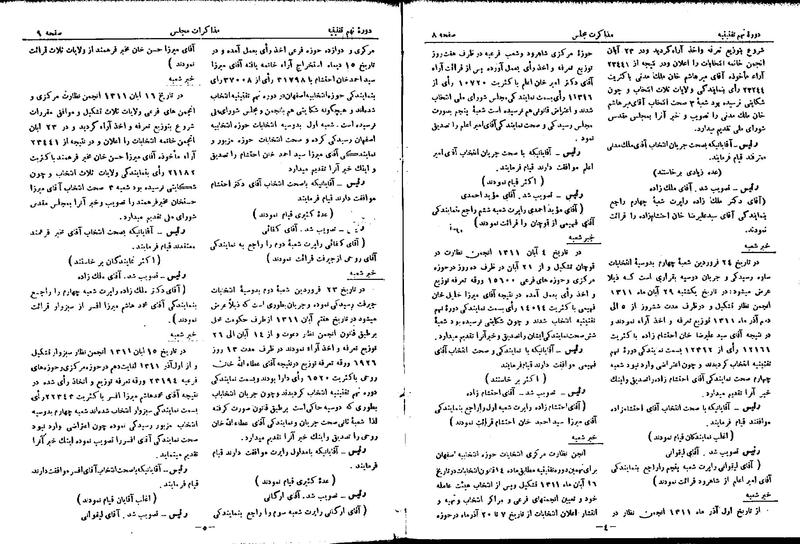 صفحه ۸ مذاکرات مجلس دورهٔ نهم تقنینیه
شروع بتوزیع تعرفه واخذ آراء گردید ودر ۲۳ آبان
انجمن خاتمه انتخابات را اعلان ودر نتیجه از ۲۳۴۴۱
آراء مأخوذه آقای میرهاشم خان ملک مدنی باکثریت
۲۳۲۴۴ رأی بنمایندگی ولایات ثلاث انتخاب و چون
شکایتی نرسیده بود شعبهٔ ۳ صحت انتخاب آقای میرهاشم
خان ملک مدنی را تصویب و خبر آنرا بمجلس مقدس
شورای ملی تقدیم میدارد.
رئیس ـ آقایانیکه بصحت جریان انتخاب آقای ملک مدنی
معتقدند قیام فرمایند.
(عده زیادی برخاستند)
رئیس ـ تصویب شد. آقای ملک زاده
(آقای دکتر ملک زاده راپرت شعبهٔ چهارم راجع
بنمایندگی آقای سیدعلیرضا خان احتشام‌زاده را قرائت
نمودند.
خبر شعبه
در تاریخ ۲۴ فروردین شعبهٔ چهارم بدوسیه انتخابات
ساوه رسیدگی و جریان دوسیه بقراری است که ذیلا
عرض میشود: در تاریخ یکشنبه ۲۹ آبان ماه ۱۳۱۱
انجمن نظار تشکیل و در ظرف مدت ششروز از ۵ الی
دهم آذر ماه ۱۳۱۱ توزیع تعرفه و اخذ آراء نمودند و
در نتیجه آقای سید علیرضا خان احتشام زاده باکثریت
۱۲۱۶۱ رأی از ۱۲۳۱۲ بسمت نمایندگی دورهٔ نهم
تقنینیه انتخاب گردیدند و چون اعتراضی وارد نبود شعبه
چهارم صحت نمایندگی آقای احتشام زاده را تصدیق واینک
خبر آنرا تقدیم میدارد.
رئیس ـ آقایانیکه با صحت انتخاب آقای احتشام‌زاده
موافقند قیام فرمایند.
(اغلب نمایندگان قیام نمودند)
رئیس ـ تصویب شد. آقای لیقوانی
(آقای لیقوانی راپرت شعبه پنجم راجع بنمایندگی
آقای امیر اعلم از شاهرود قرائت نمودند)
خبر شعبه
از تاریخ اول آذر ماه ۱۳۱۱ انجمن نظار در
حوزه مرکزی شاهرود وشعب فرعیه در ظرف هفت روز
توزیع تعرفه و اخذ رأی بعمل آورده پس از قرائت آراء
آقای دکتر امیر خان اعلم با کثریت ۱۰۷۲۰ رأی از
۱۱۳۱۶ رأی بسمت نمایندگی مجلس شورای ملی انتخاب
شدند و اعتراض قانونی هم نرسیده است شعبهٔ پنجم بصورت
مجلس رسیدگی و صحت نمایندگی آقای امیر اعلم را تصدیق
نمود.
رئیس ـ آقایانیکه با صحت جریان انتخاب آقای امیر
اعلم موافقند قیام فرمایند.
(اکثر قیام نمودند)
رئیس ـ تصویب شد. آقای مؤید احمدی
(آقای مؤید احمدی راپرت شعبه ششم راجع بنمایندگی
آقای فهیمی از قوچان را قرائت نمودند)
خبر شعبه
در تاریخ ۴ آبان ۱۳۱۱ انجمن نظارت در
قوچان تشکیل و از ۲۱ آبان در ظرف ده روز در حوزه
مرکزی و حوزه های فرعی ۱۵۱۰۰ ورقه تعرفه توزیع
و اخذ رأی بعمل آمده در نتیجه آقای میرزا خلیل خان
فهیمی با کثریت ۱۴۰۱۴ رأی بسمت نمایندگی دورهٔ نهم
تقنینیه انتخاب شدند و چون شکایتی نرسیده بود شعبهٔ
ششم صحت نمایندگی ایشان را تصدیق و خبر آنرا تقدیم میدارد.
رئیس ـ آقایانیکه با نمایندگی و صحت انتخاب آقای
فهیمی موافقت دارند قیام فرمایند.
(اکثر بر خاستند)
رئیس ـ تصویب شد. آقای احتشام زاده
(آقای احتشام زاده راپرت شعبه اول را راجع بنمایندگی
آقای میرزا سید احمد خان احتشام قرائت نمودند)
خبر شعبه
انجمن نظارت مرکزی انتخابات حوزه انتخابیه اصفهان
برای نهمین دوره تقنینیه مطابق ماده ۱۴ قانون انتخابات در تاریخ
۱۶ آبان ماه ۱۳۱۱ تشکیل وپس از انتخاب هیئت عامله
خود و تعیین انجمنهای فرعی و مراکز انتخاب و تهیه و
انتشار اعلان انتخابات از تاریخ ۷ تا ۲۰ آذرماه در حوزه
ـ ٤ ـ
دورهٔ نهم تقنینیه مذاکرات مجلس صفحه ۹
مرکزی و دوازده حوزه فرعی اخذ رأی بعمل آمده و در
تاریخ ۱۵ دیماه استخراج آراء خاتمه یافته آقای میرزا
سید احمدخان احتشام با ۳۱۷۹۸ رأی از ۳۷۰۰۸ رأی
بنمایندگی حوزه انتخابیه اصفهان در دوره نهم تقنینیه انتخاب
شده‌اند و هیچگونه شکایتی هم بانجمن و مجلس شورای ملی
نرسیده است. شعبه اول بدوسیه انتخابات حوزه انتخابیه
اصفهان رسیدگی کرده و صحت انتخابات حوزه مزبور و
نمایندگی آقای میرزا سید احمد خان احتشام را تصدیق
و اینک خبر آنرا تقدیم میدارد
رئیس ـ آقایانیکه باصحت انتخاب آقای دکتر احتشام
موافقت دارند قیام فرمایند.
(عدهٔ کثیری قیام نمودند)
رئیس ـ تصویب شد. آقای کفائی
(آقای کفائی راپرت شعبهٔ دوم را راجع به نمایندگی
آقای روحی از جیرفت قرائت نمودند)
خبر شعبه
در تاریخ ۲۳ فروردین شعبهٔ دوم بدوسیهٔ انتخابات
جیرفت رسیدگی نموده وجریان بطوری است که ذیلا عرض
میشود در تاریخ هفتم آبان ۱۳۱۱ از طرف حکومت محل
برطبق قانون انجمن نظار دعوت و از ۱۴ آبان الی ۲۶
توزیع تعرفه و اخذ آراء نمودند در ظرف مدت ۱۳ روز
۱۹۲۶ ورقه تعرفه توزیع و درنتیجه آقای عطاءالله خان
روحی باکثریت ۱۵۲۰ رأی دارا بودند بسمت نمایندگی
دوره نهم تقنینیه انتخاب گردیدند وچون جریان انتخابات
بطوری که دوسیه حاکی است برطبق قانون صورت گرفته
لذا شعبهٔ ثانی صحت جریان و نمایندگی آقای عطاءالله خان
روحی را تصدیق و اینک خبر آنرا تقدیم میدارد.
رئیس ـ آقایانیکه بامدلول راپرت موافقت دارند قیام
فرمایند.
(عدهٔ کثیری قیام نمودند)
رئیس ـ تصویب شد. آقای اورکانی
(آقای اورکانی راپرت شعبه سوم را راجع بنمایندگی
آقای میرزا حسن خان مخبر فرهمند از ولایات ثلاث قرائت
نمودند)
خبر شعبه
در تاریخ ۱۶ ابان ۱۳۱۱ انجمن نظارت مرکزی و
انجمن های فرعی ولایات ثلاث تشکیل و موافق مقررات
شروع بتوزیع تعرفه و اخذ آراء گردید و در ۲۳ آبان
انجمن خاتمه انتخابات را اعلان و در نتیجه از ۲۳۴۴۱
آراء مأخوذه آقای میرزا حسن خان مخبر فرهمند باکثریت
۲۱۱۸۲ رأی بنمایندگی ولایات ثلاث انتخاب و چون
شکایتی نرسیده بود شعبه ۳ صحت انتخاب آقای میرزا
حسنخان مخبر فرهمند را تصویب وخبر آنرا بمجلس مقدس
شورای ملی تقدیم میدارد.
رئیس ـ آقایانیکه بصحت انتخاب آقای مخبر فرهمند
معتقدند قیام فرمایند.
(اکثر نمایندگان بر خاستند)
رئیس ـ تصویب شد. آقای ملک زاده
(آقای دکتر ملک زاده راپرت شعبه چهارم را راجع
بنمایندگی آقای محمد هاشم میرزا افسر از سبزوار قرائت
نمودند).
خبر شعبه
در تاریخ ۱۵ ابان ۱۳۱۱ انجمن نظار سبزوار تشکیل
و از اول آذر ۱۳۱۱ لغایت دهم در حوزه مرکزی و حوزه‌های
فرعیه ۲۳۱۹۴ ورقه تعرفه توزیع و اتخاذ رأی شده در
نتیجه آقای محمدهاشم میرزا افسر با کثریت ۲۲۳۴۵ رأی
بسمت نمایندگی سبزوار انتخاب شده‌اند شعبه چهارم بدوسیه
انتخاب مزبور رسیدگی نموده چون اعتراضی وارد نبود
نمایندگی آقای افسر را تصویب نموده اینک خبر آنرا
تقدیم مینماید.
رئیس ـ آقایانیکه باصحت انتخاب آقای افسر موافقت دارند
قیام فرمایند.
(اغلب آقایان قیام نمودند)
رئیس ـ تصویب شد. آقای لیقوانی
ـ ٥ ـ